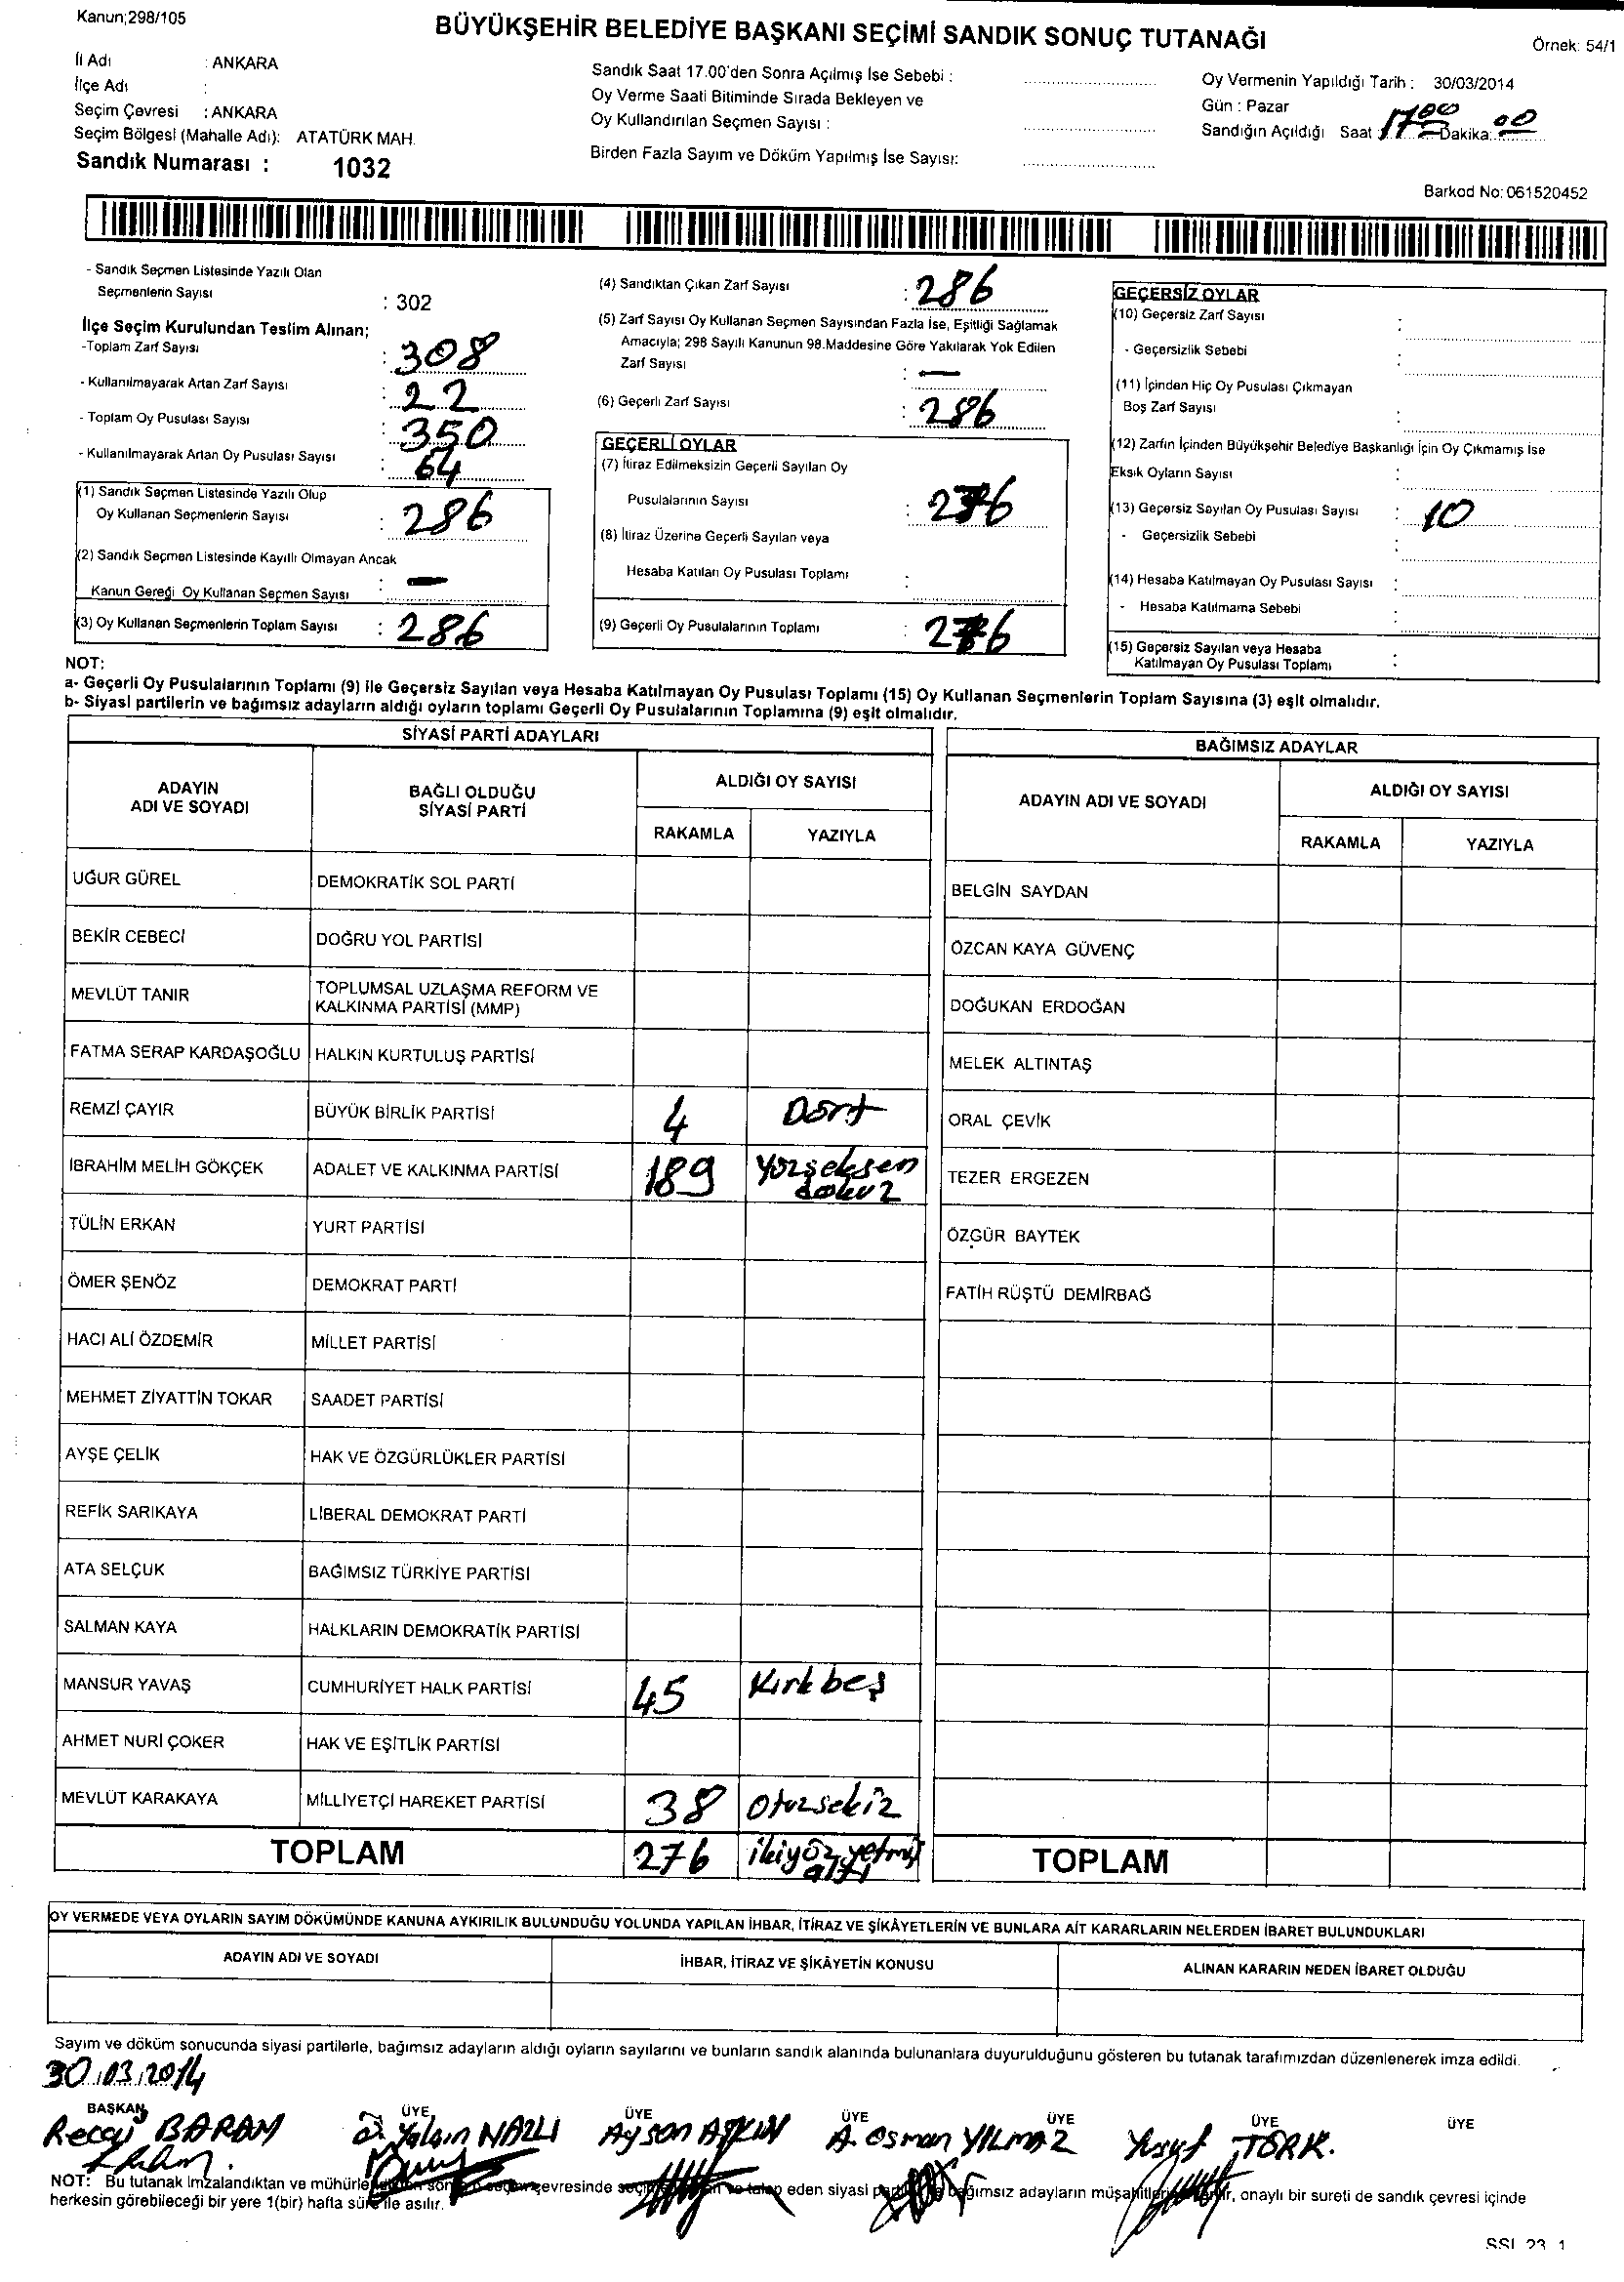 Kanun;298/105
BÜYÜKŞEHİR BELEDİYE BAŞKANI SEÇİMİ SANDIK SONUÇ TUTANAĞI
Örnek: 54/1
İl Adı : ANKARA
İlçe Adı :
Seçim Çevresi : ANKARA
Seçim Bölgesi (Mahalle Adı): ATATÜRK MAH.
Sandık Numarası : 1032
Sandık Saat 17.00'den Sonra Açılmış İse Sebebi :
Oy Verme Saati Bitiminde Sırada Bekleyen ve
Oy Kullandırılan Seçmen Sayısı :
Birden Fazla Sayım ve Döküm Yapılmış İse Sayısı:
Oy Vermenin Yapıldığı Tarih : 30/03/2014
Gün : Pazar
Sandığın Açıldığı Saat : 17 00 Dakika: 00
Barkod No: 061520452
- Sandık Seçmen Listesinde Yazılı Olan
Seçmenlerin Sayısı : 302
İlçe Seçim Kurulundan Teslim Alınan;
-Toplam Zarf Sayısı : 308
- Kullanılmayarak Artan Zarf Sayısı : 22
- Toplam Oy Pusulası Sayısı : 350
- Kullanılmayarak Artan Oy Pusulası Sayısı : 64
(1) Sandık Seçmen Listesinde Yazılı Olup
Oy Kullanan Seçmenlerin Sayısı : 286
(2) Sandık Seçmen Listesinde Kayıtlı Olmayan Ancak
Kanun Gereği Oy Kullanan Seçmen Sayısı : —
(3) Oy Kullanan Seçmenlerin Toplam Sayısı : 286
(4) Sandıktan Çıkan Zarf Sayısı : 286
(5) Zarf Sayısı Oy Kullanan Seçmen Sayısından Fazla İse, Eşitliği Sağlamak
Amacıyla; 298 Sayılı Kanunun 98.Maddesine Göre Yakılarak Yok Edilen
Zarf Sayısı : —
(6) Geçerli Zarf Sayısı : 286
GEÇERLİ OYLAR
(7) İtiraz Edilmeksizin Geçerli Sayılan Oy
Pusulalarının Sayısı : 276
(8) İtiraz Üzerine Geçerli Sayılan veya
Hesaba Katılan Oy Pusulası Toplamı :
(9) Geçerli Oy Pusulalarının Toplamı : 276
GEÇERSİZ OYLAR
(10) Geçersiz Zarf Sayısı :
- Geçersizlik Sebebi :
(11) İçinden Hiç Oy Pusulası Çıkmayan
Boş Zarf Sayısı :
(12) Zarfın İçinden Büyükşehir Belediye Başkanlığı İçin Oy Çıkmamış İse
Eksik Oyların Sayısı :
(13) Geçersiz Sayılan Oy Pusulası Sayısı : 10
- Geçersizlik Sebebi :
(14) Hesaba Katılmayan Oy Pusulası Sayısı :
- Hesaba Katılmama Sebebi :
(15) Geçersiz Sayılan veya Hesaba
Katılmayan Oy Pusulası Toplamı :
NOT:
a- Geçerli Oy Pusulalarının Toplamı (9) ile Geçersiz Sayılan veya Hesaba Katılmayan Oy Pusulası Toplamı (15) Oy Kullanan Seçmenlerin Toplam Sayısına (3) eşit olmalıdır.
b- Siyasi partilerin ve bağımsız adayların aldığı oyların toplamı Geçerli Oy Pusulalarının Toplamına (9) eşit olmalıdır.
SİYASİ PARTİ ADAYLARI
ADAYIN ADI VE SOYADI
BAĞLI OLDUĞU SİYASİ PARTİ
ALDIĞI OY SAYISI
RAKAMLA YAZIYLA
UĞUR GÜREL DEMOKRATİK SOL PARTİ
BEKİR CEBECİ DOĞRU YOL PARTİSİ
MEVLÜT TANIR TOPLUMSAL UZLAŞMA REFORM VE
KALKINMA PARTİSİ (MMP)
FATMA SERAP KARDAŞOĞLU HALKIN KURTULUŞ PARTİSİ
REMZİ ÇAYIR BÜYÜK BİRLİK PARTİSİ 4 Dört
İBRAHİM MELİH GÖKÇEK ADALET VE KALKINMA PARTİSİ 189 Yüzseksen
dokuz
TÜLİN ERKAN YURT PARTİSİ
ÖMER ŞENÖZ DEMOKRAT PARTİ
HACI ALİ ÖZDEMİR MİLLET PARTİSİ
MEHMET ZİYATTİN TOKAR SAADET PARTİSİ
AYŞE ÇELİK HAK VE ÖZGÜRLÜKLER PARTİSİ
REFİK SARIKAYA LİBERAL DEMOKRAT PARTİ
ATA SELÇUK BAĞIMSIZ TÜRKİYE PARTİSİ
SALMAN KAYA HALKLARIN DEMOKRATİK PARTİSİ
MANSUR YAVAŞ CUMHURİYET HALK PARTİSİ 45 Kırkbeş
AHMET NURİ ÇOKER HAK VE EŞİTLİK PARTİSİ
MEVLÜT KARAKAYA MİLLİYETÇİ HAREKET PARTİSİ 38 Otuzsekiz
TOPLAM 276 ikiyüzyetmiş
altı
BAĞIMSIZ ADAYLAR
ADAYIN ADI VE SOYADI
ALDIĞI OY SAYISI
RAKAMLA YAZIYLA
BELGİN SAYDAN
ÖZCAN KAYA GÜVENÇ
DOĞUKAN ERDOĞAN
MELEK ALTINTAŞ
ORAL ÇEVİK
TEZER ERGEZEN
ÖZGÜR BAYTEK
FATİH RÜŞTÜ DEMİRBAĞ
TOPLAM
OY VERMEDE VEYA OYLARIN SAYIM DÖKÜMÜNDE KANUNA AYKIRILIK BULUNDUĞU YOLUNDA YAPILAN İHBAR, İTİRAZ VE ŞİKÂYETLERİN VE BUNLARA AİT KARARLARIN NELERDEN İBARET BULUNDUKLARI
ADAYIN ADI VE SOYADI İHBAR, İTİRAZ VE ŞİKÂYETİN KONUSU ALINAN KARARIN NEDEN İBARET OLDUĞU
Sayım ve döküm sonucunda siyasi partilerle, bağımsız adayların aldığı oyların sayılarını ve bunların sandık alanında bulunanlara duyurulduğunu gösteren bu tutanak tarafımızdan düzenlenerek imza edildi.
30.03.2014
BAŞKAN ÜYE ÜYE ÜYE ÜYE ÜYE ÜYE
Recai BARAN Yalçın NAZLI Ayson AŞKIN A. Osman YILMAZ Yusuf TÜRK.
NOT: Bu tutanak imzalandıktan ve çevresinde eden siyasi bağımsız adayların onaylı bir sureti de sandık çevresi içinde
herkesin görebileceği bir yere 1(bir) hafta süre ile asılır.